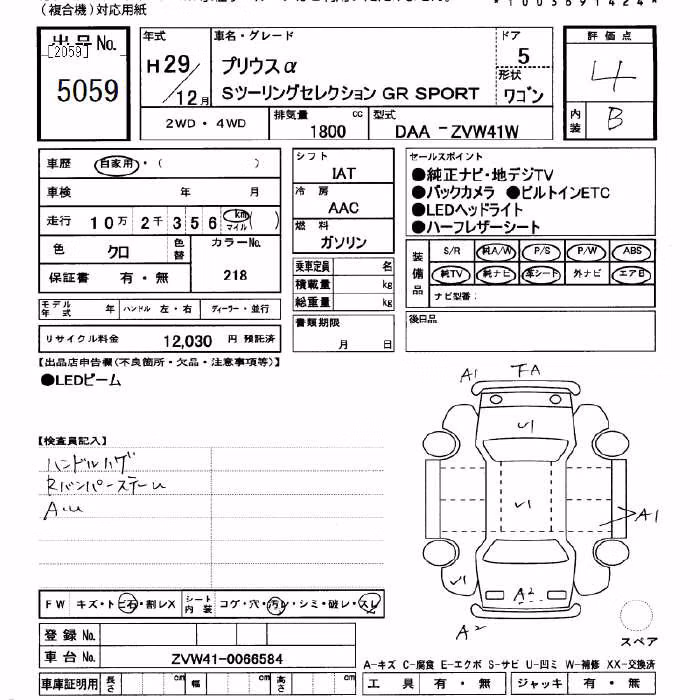 (複合機)対応用紙
*1003691424*
出品No.
[2059]
5059
年式
H29/12月
車名・グレード
プリウスα
Sツーリングセレクション GR SPORT
ドア
5
形状
ワゴン
評価点
4
内装
B
2WD・4WD
排気量
1800 cc
型式
DAA-ZVW41W
車歴
自家用・( )
車検 年 月
走行 10万 2千 3 5 6 km マイル ( )
色
クロ
色替
カラーNo.
218
保証書 有・無
モデル年式 年
ハンドル 左・右
ディーラー・並行
リサイクル料金 12,030 円 預託済
シフト
IAT
冷房
AAC
燃料
ガソリン
乗車定員 名
積載量 kg
総重量 kg
書類期限
月 日
セールスポイント
●純正ナビ・地デジTV
●バックカメラ ●ビルトインETC
●LEDヘッドライト
●ハーフレザーシート
装備品
S/R 純A/W P/S P/W ABS
純TV 純ナビ 革シート 外ナビ エアB
ナビ型番:
後日品
【出品店申告欄(不良箇所・欠品・注意事項等)】
●LEDビーム
【検査員記入】
ハンドルハゲ
RバンパーステーU
A.U
A1 FA
U1
U1
A1
U1
A2
A2
スペア
FW キズ・トビ石・割レX
シート内装 コゲ・穴・汚レ・シミ・破レ・スレ
登録No.
車台No. ZVW41-0066584
車庫証明用 長さ cm 幅 cm 高さ cm
A-キズ C-腐食 E-エクボ S-サビ U-凹ミ W-補修 XX-交換済
工具 有・無 ジャッキ 有・無